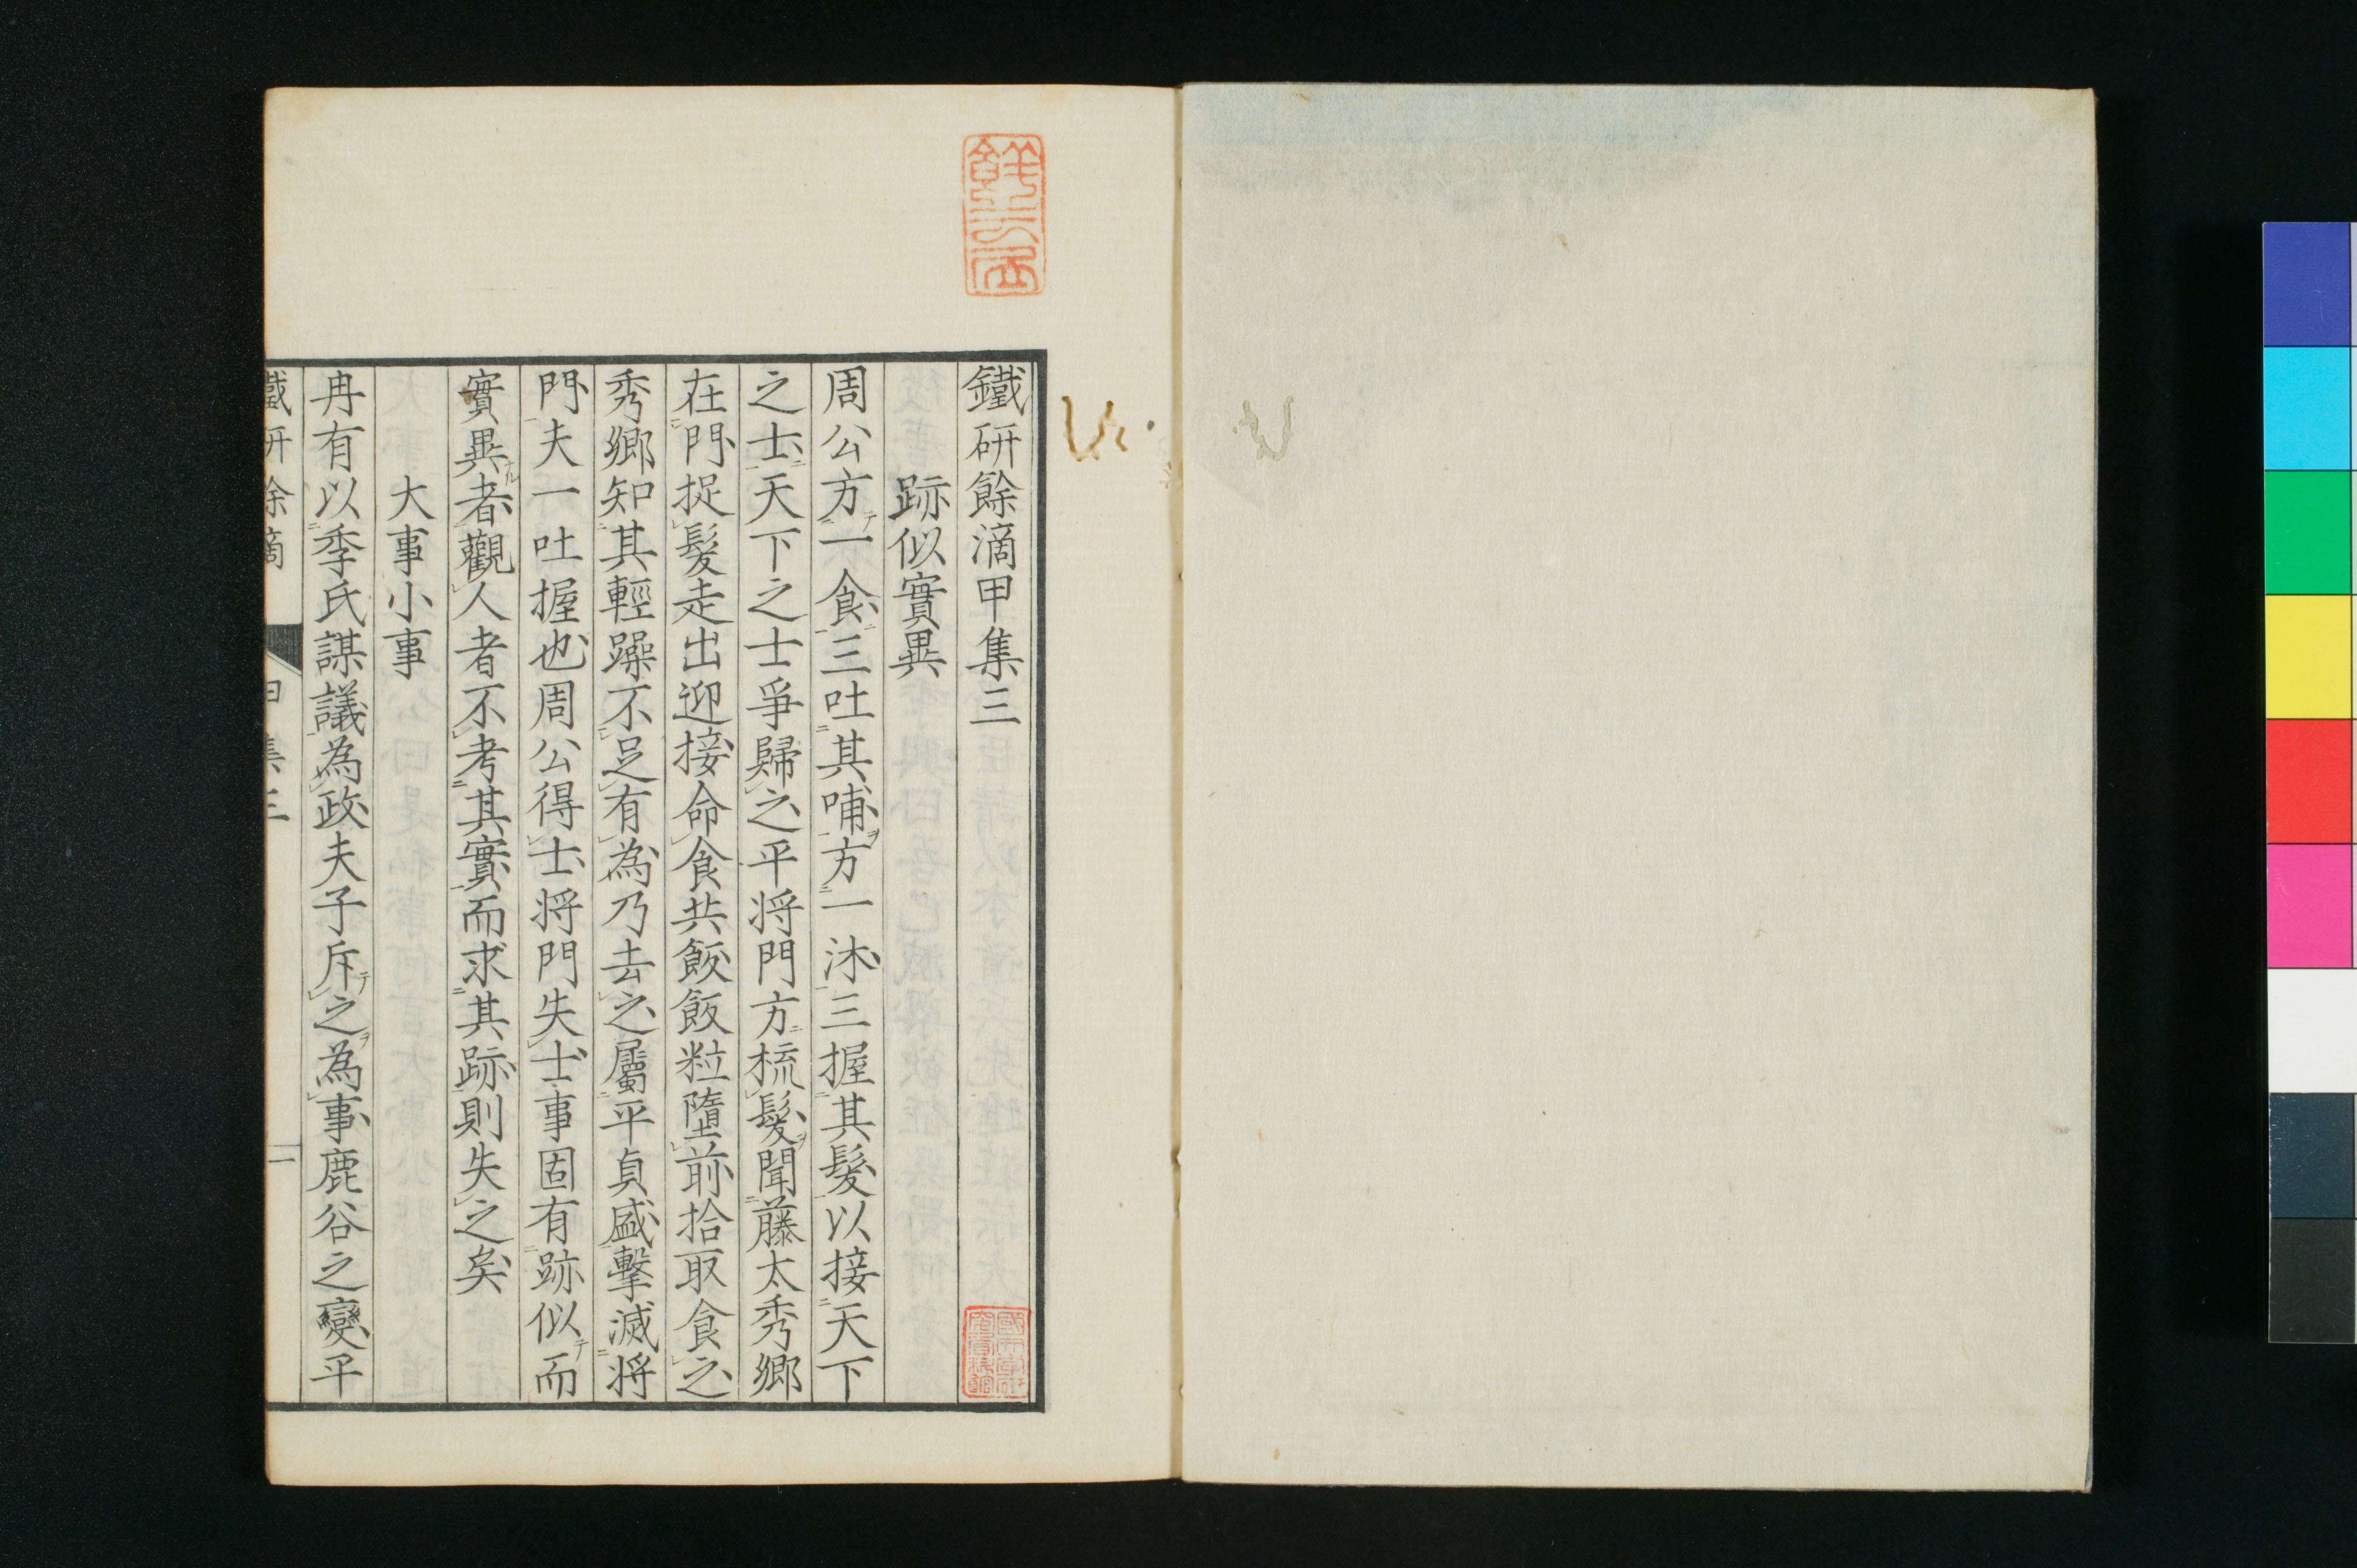 鐵研餘滴甲集三
跡似實異
周公方一食三吐其哺方一沐三握其髮以接天下
之士天下之士爭歸之平将門方梳髮聞藤太秀郷
在門捉髮走出迎接命食共飯飯粒墮前拾取食之
秀郷知其輕躁不足有為乃去之屬平貞盛擊滅将
門夫一吐握也周公得士将門失士事固有跡似而
實異者觀人者不考其實而求其跡則失之矣
大事小事
冉有以季氏謀議為政夫子斥之為事鹿谷之變平
甲集三
一